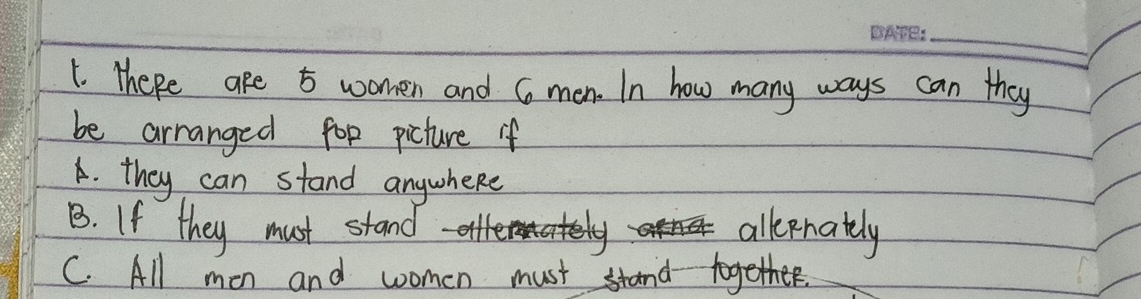 DATE:
1. There are 5 women and 6 men. In how many ways can they
be arranged for picture if
A. they can stand anywhere
B. If they must stand alternately
C. All men and women must stand together.